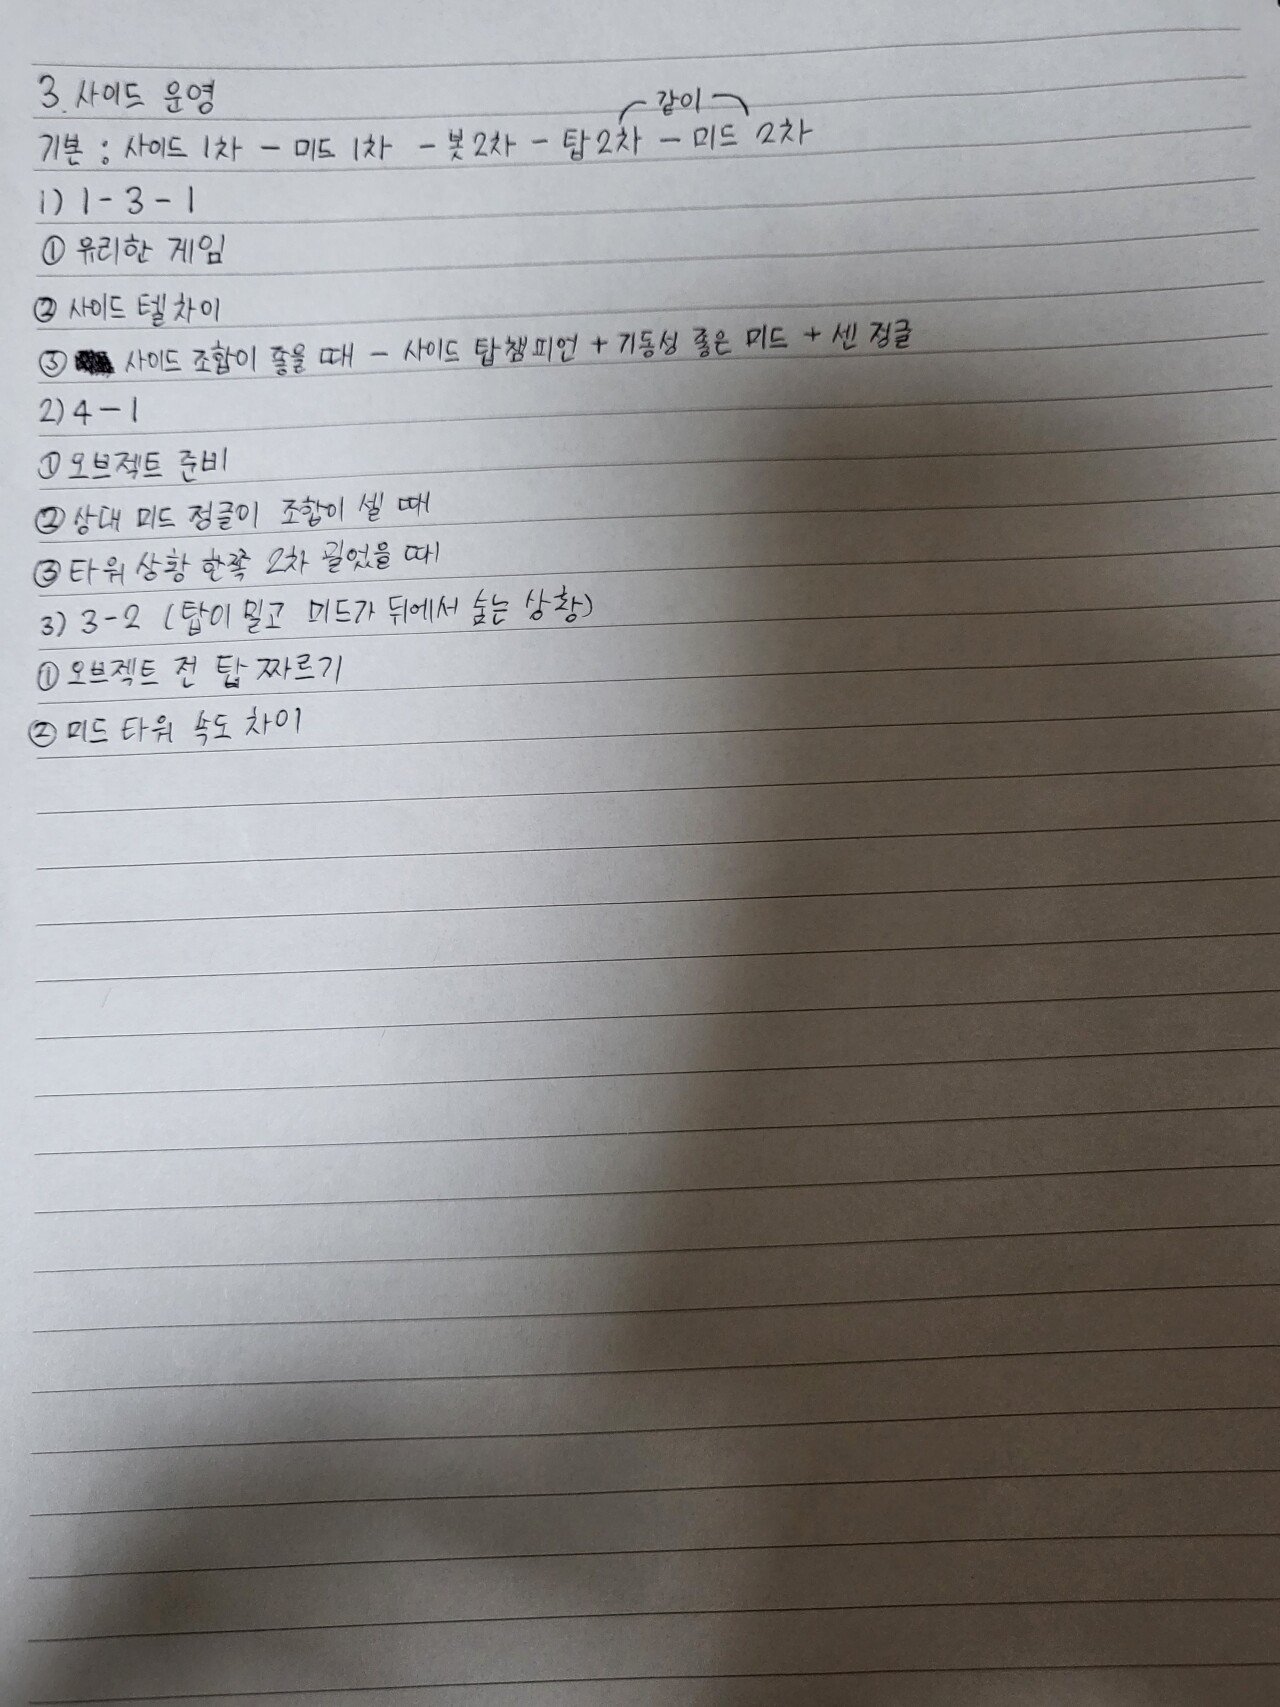 3. 사이드 운영
같이
기본 : 사이드 1차 - 미드 1차 - 봇 2차 - 탑 2차 - 미드 2차
1) 1-3-1
① 유리한 게임
② 사이드 텔 차이
③ 사이드 조합이 좋을 때 - 사이드 탑 챔피언 + 기동성 좋은 미드 + 센 정글
2) 4-1
① 오브젝트 준비
② 상대 미드 정글이 조합이 셀 때
③ 타워 상황 한쪽 2차 밀었을 때
3) 3-2 (탑이 밀고 미드가 뒤에서 숨는 상황)
① 오브젝트 전 탑 짜르기
② 미드 타워 속도 차이